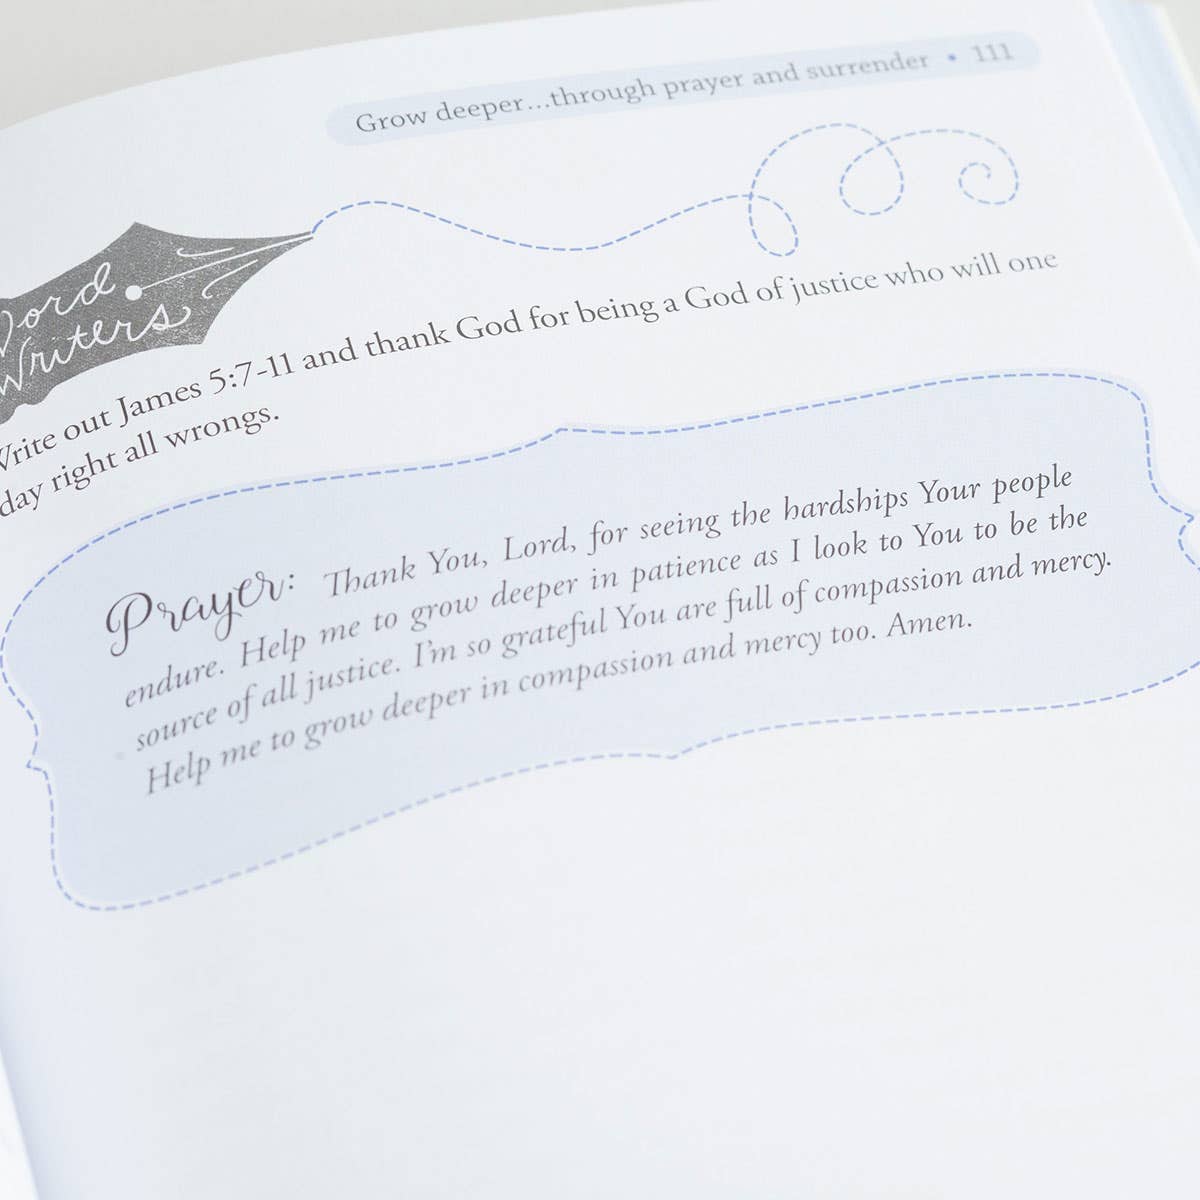 Grow deeper...through prayer and surrender • 111
Word
Writers
Write out James 5:7-11 and thank God for being a God of justice who will one
day right all wrongs.
Prayer: Thank You, Lord, for seeing the hardships Your people
endure. Help me to grow deeper in patience as I look to You to be the
source of all justice. I'm so grateful You are full of compassion and mercy.
Help me to grow deeper in compassion and mercy too. Amen.